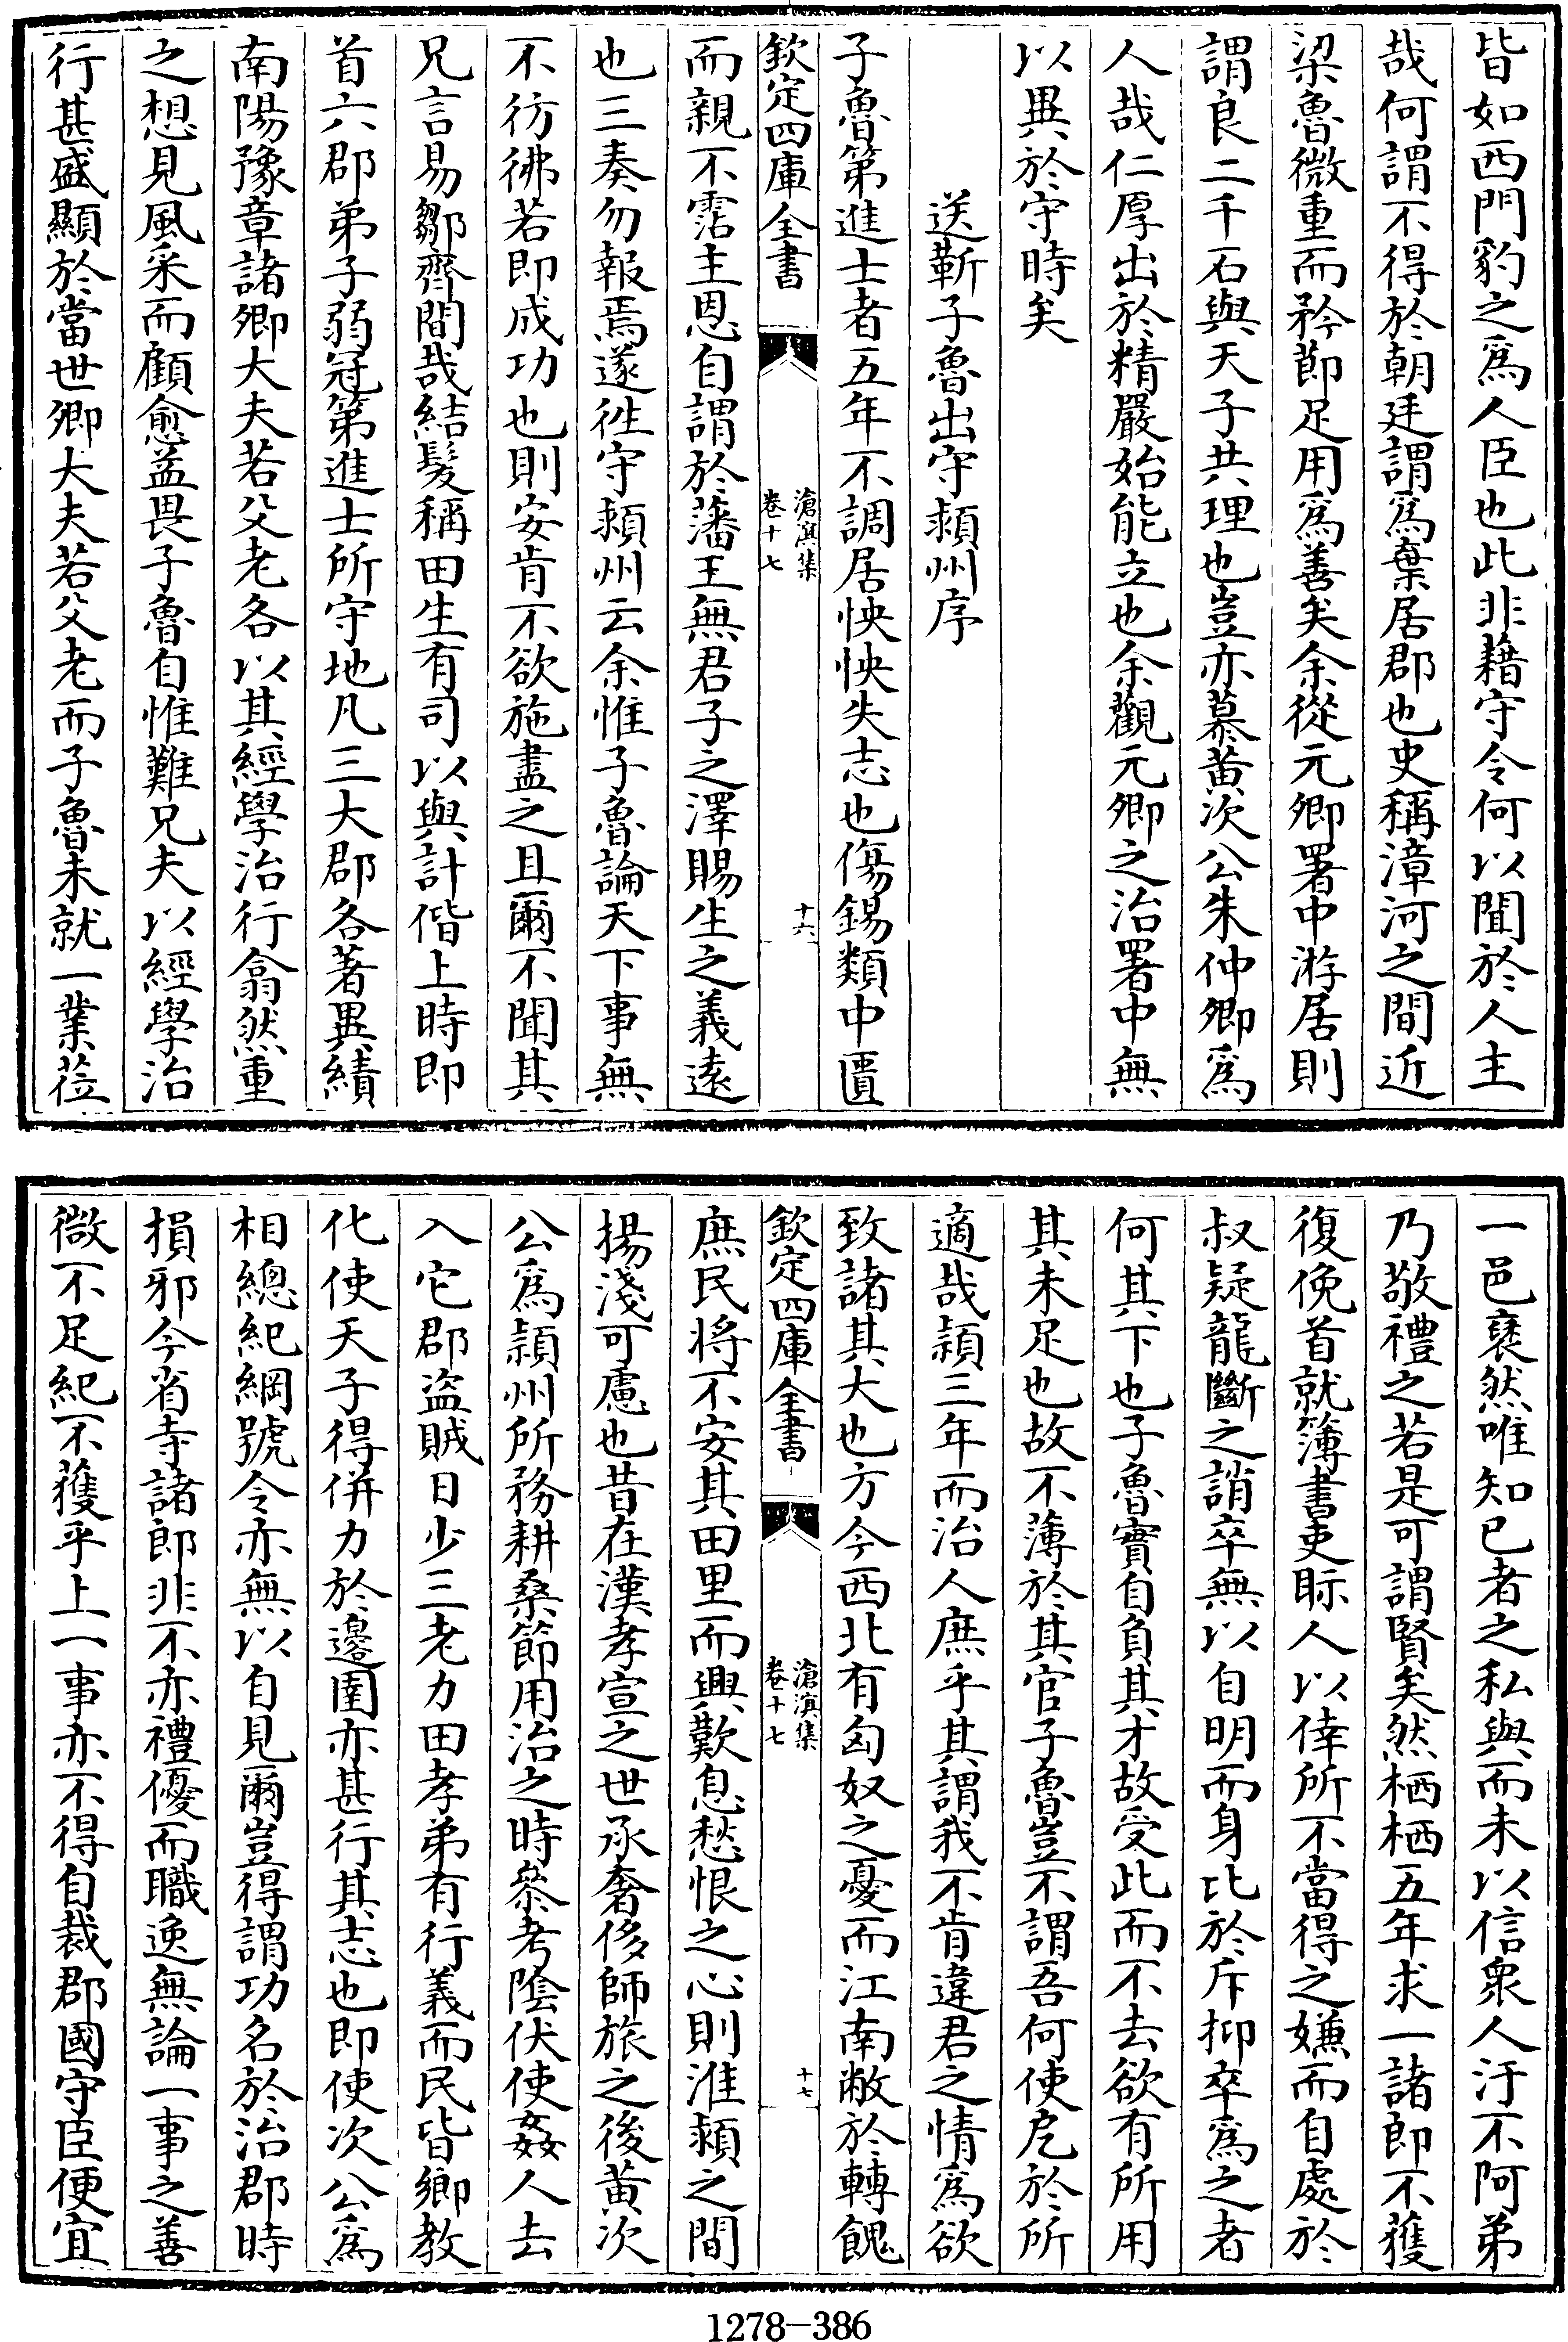 皆如西門豹之為人臣也此非藉守令何以聞於人主
哉何謂不得於朝廷謂為棄居郡也史稱漳河之間近
梁魯微重而矜節足用為善矣余從元卿署中游居則
謂良二千石與天子共理也豈亦慕黄次公朱仲卿為
人哉仁厚出於精嚴始能立也余觀元卿之治署中無
以異於守時矣
送靳子魯出守潁州序
子魯第進士者五年不調居怏怏失志也傷錫類中匱
欽定四庫全書
滄溟集
卷十七
十六
而親不霑主恩自謂於藩王無君子之澤賜生之義遠
也三奏勿報焉遂徃守潁州云余惟子魯論天下事無
不彷彿若即成功也則安肯不欲施盡之且爾不聞其
兄言易鄒齊間哉結髪稱田生有司以與計偕上時即
首六郡弟子弱冠第進士所守地凡三大郡各著異績
南陽豫章諸卿大夫若父老各以其經學治行翕然重
之想見風采而顧愈益畏子魯自惟難兄夫以經學治
行甚盛顯於當世卿大夫若父老而子魯未就一業莅
一邑裦然唯知已者之私與而未以信衆人汙不阿弟
乃敬禮之若是可謂賢矣然栖栖五年求一諸郎不獲
復俛首就簿書吏眎人以倖所不當得之嫌而自處於
叔疑龍斷之誚卒無以自明而身比於斥抑卒為之者
何其下也子魯實自負其才故受此而不去欲有所用
其未足也故不薄於其官子魯豈不謂吾何使戹於所
適哉潁三年而治人庶乎其謂我不肯違君之情為欲
致諸其大也方今西北有匈奴之憂而江南敝於轉餽
欽定四庫全書
滄溟集
卷十七
十七
庶民将不安其田里而興歎息愁恨之心則淮潁之間
揚淺可慮也昔在漢孝宣之世承奢侈師旅之後黄次
公為潁州所務耕桑節用治之時叅考陰伏使姦人去
入它郡盜賊日少三老力田孝弟有行義而民皆鄉教
化使天子得併力於邊圉亦甚行其志也即使次公為
相總紀綱號令亦無以自見爾豈得謂功名於治郡時
損邪今省寺諸郎非不亦禮優而職逸無論一事之善
微不足紀不獲乎上一事亦不得自裁郡國守臣便宜
1278—386